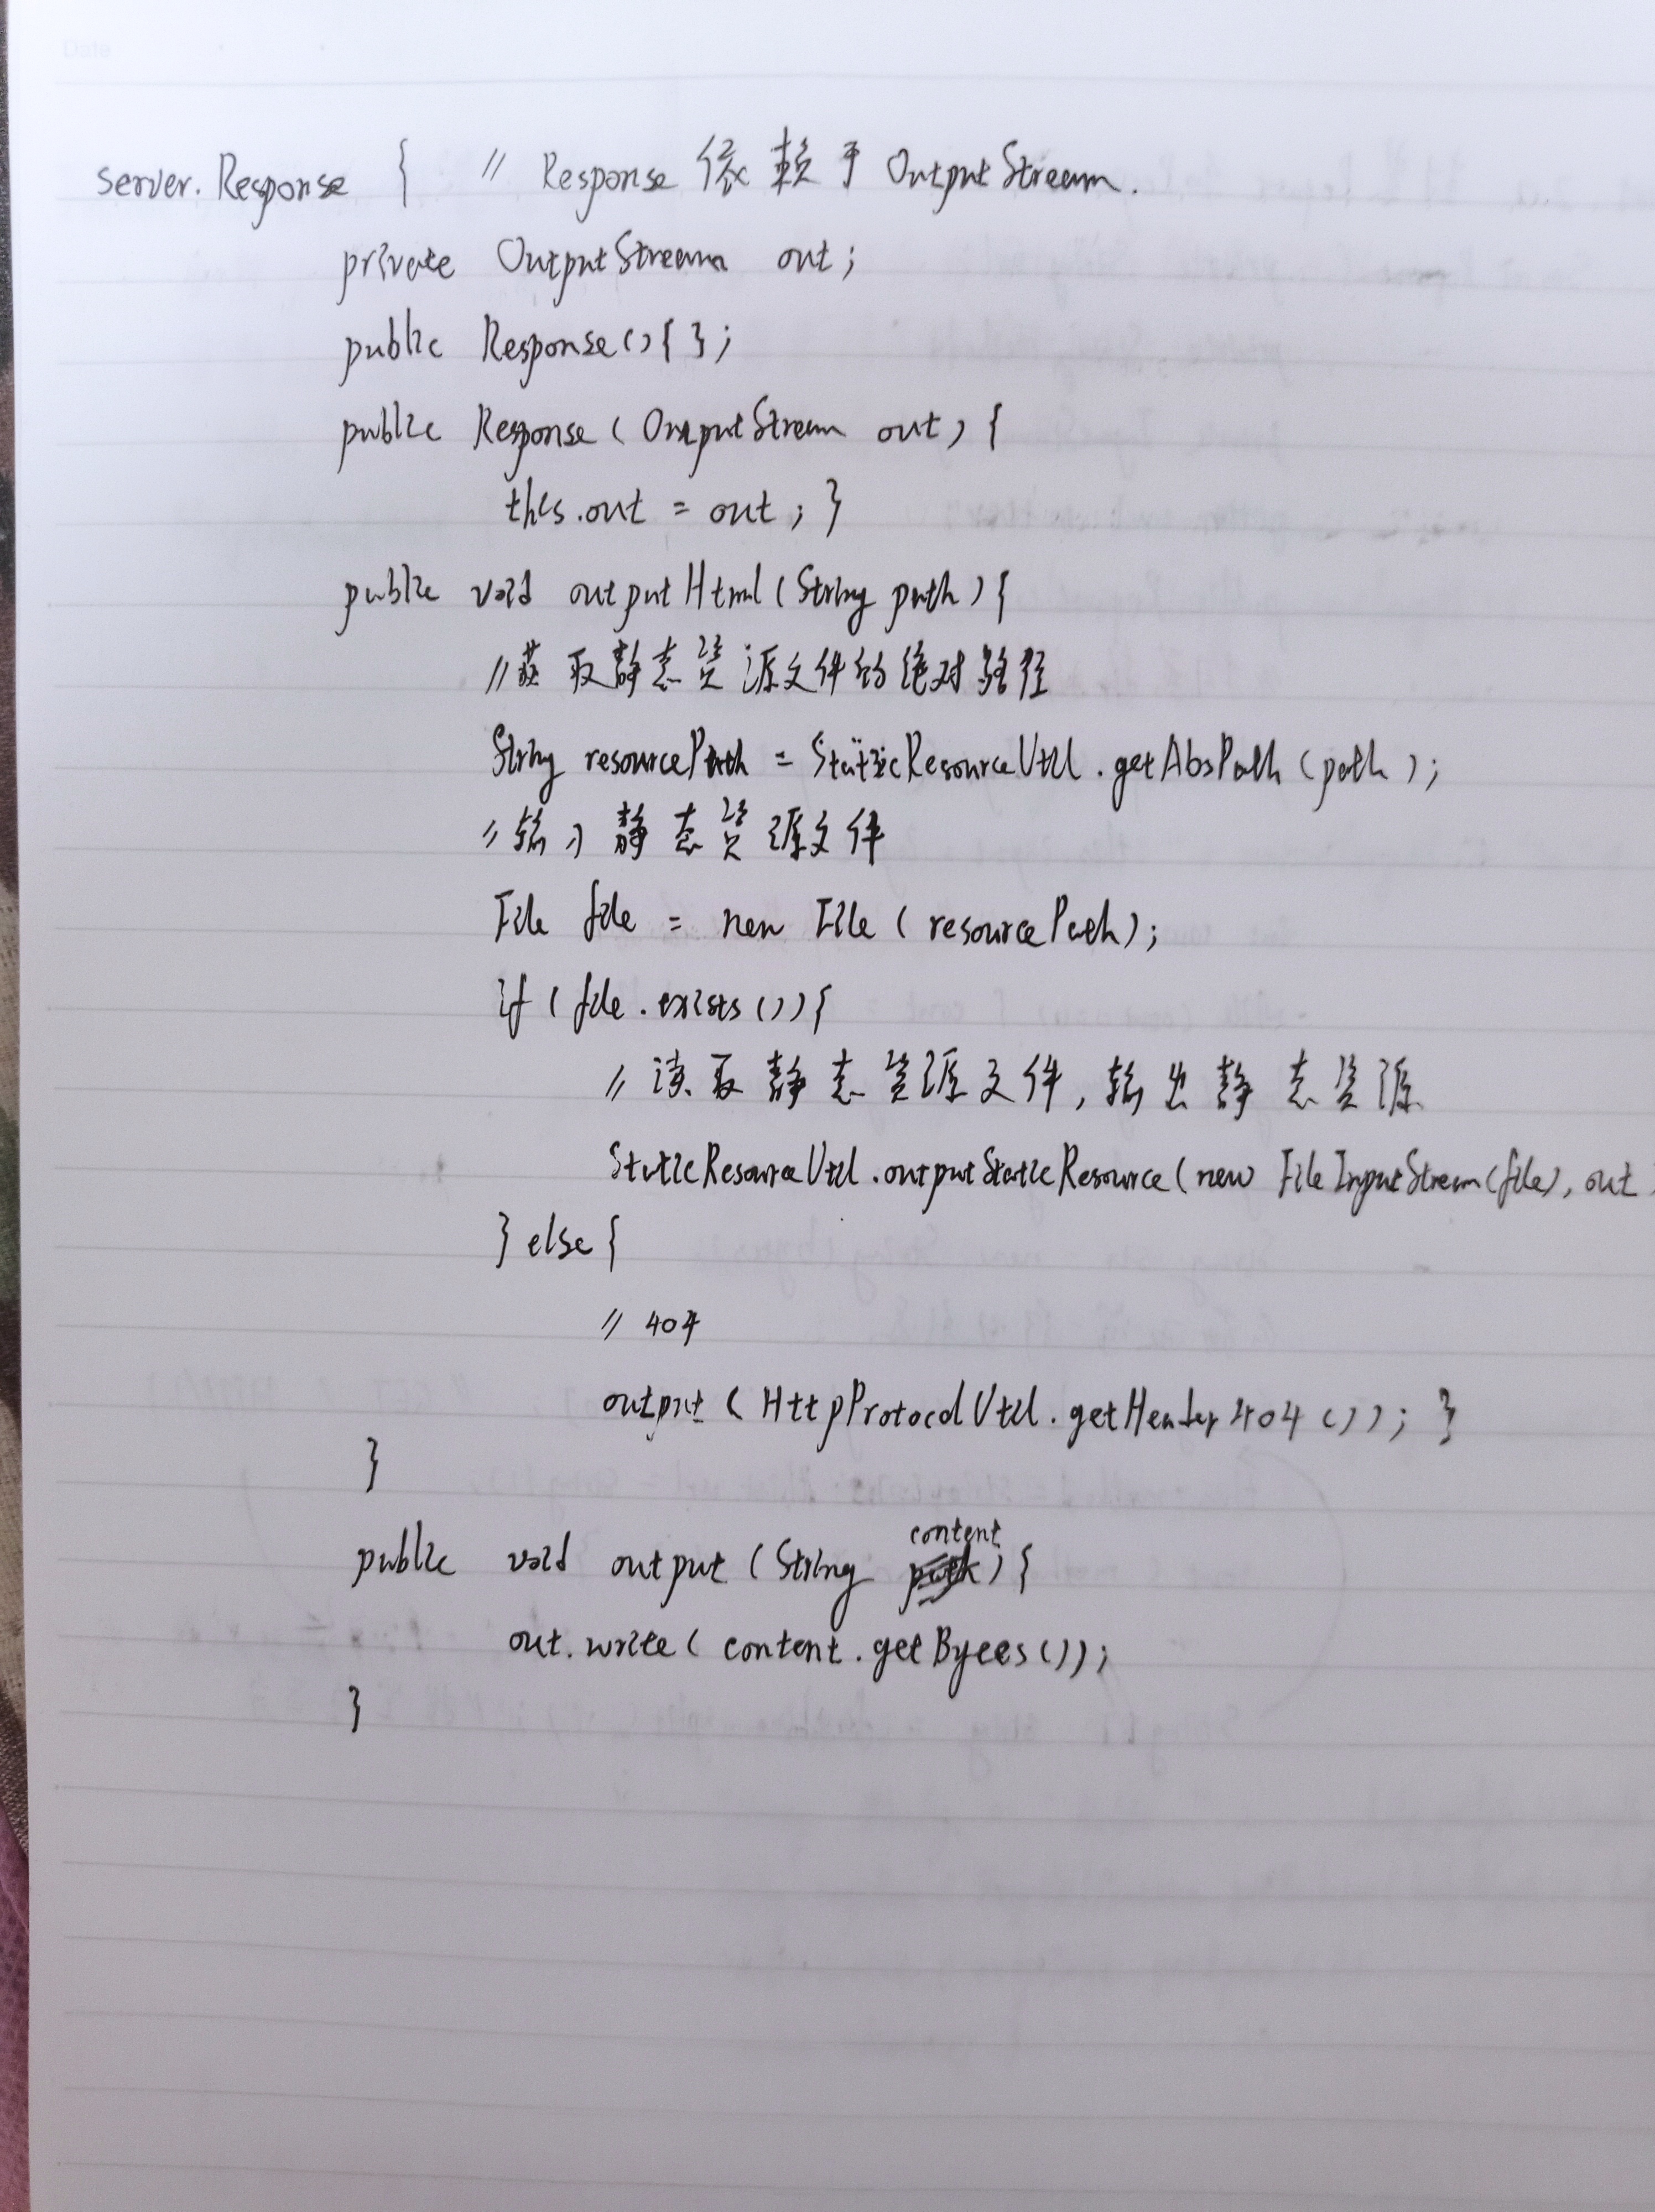 Date
server.Response { // Response 依赖于 OutputStream.
private OutputStream out;
public Response(){ };
public Response ( OutputStream out) {
this.out = out ; }
public void outputHtml ( String path ) {
// 获取静态资源文件的绝对路径
String resourcePath = StaticResourceUtil . getAbsPath ( path ) ;
// 输入静态资源文件
File file = new File ( resourcePath ) ;
if ( file . exists ( ) ) {
// 读取静态资源文件, 输出静态资源
StaticResourceUtil . outputStaticResource ( new FileInputStream (file) , out
} else {
// 404
output ( HttpProtocolUtil . getHeader404 ( ) ) ; }
}
public void output ( String content ) {
out . write ( content . getBytes ( ) ) ;
}